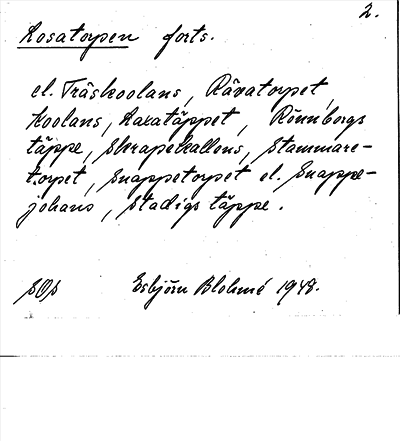 2.
Rosatorpen forts.
el. Träskoolans, Råvatorpet,
Koolans, Laxatäppet, Rönnborgs
täppe, Skrapekallens, Stammare-
torpet, Snappetorpet el. Snappe-
johans, Stadigs täppe.
SOS Esbjörn Blohmé 1948.